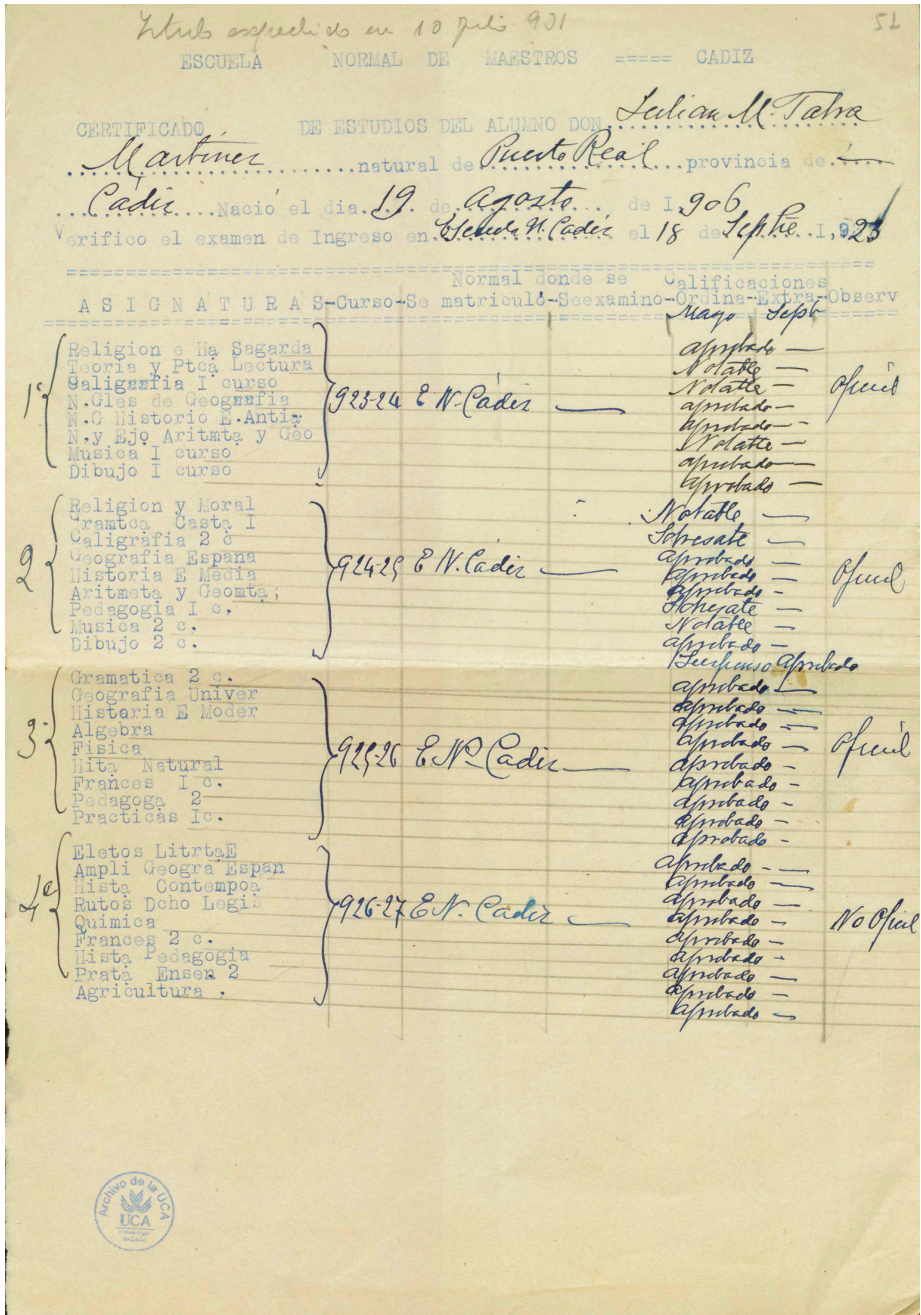 Titulo expedido en 10 Julio 931
52
ESCUELA NORMAL DE MAESTROS ===== CADIZ
CERTIFICADO DE ESTUDIOS DEL ALUMNO DON Julian M. Talva
Martinez natural de Puerto Real provincia de
Cádiz Nació el dia 19 de agosto de I.906
Verifico el examen de Ingreso en Escuela N. Cadiz el 18 de Septbre I,923
Normal donde se Calificaciones
A S I G N A T U R A S-Curso-Se matriculó-Seexamino-Ordina-Extra-Observ
Mayo Sepb
1º
Religion e Ha Sagarda aprobado —
Teoria y Ptca Lectura Notable —
Caligrafia I curso Notable —
N.Gles de Geografia 923-24 E N. Cádiz — aprobado — Oficial
N.G Historio E.Antia aprobado —
N.y Ejo Aritmta y Geo Notable —
Musica I curso aprobado —
Dibujo I curso aprobado —
2
Religion y Moral Notable —
Gramtca Casta I Sobresate —
Caligrafia 2 c aprobado —
Geografia Espana 924-25 E N. Cadiz — aprobado — Oficial
Historia E Media aprobado —
Aritmeta y Geomta; Sobresate —
Pedagogia I c. Notable —
Musica 2 c. aprobado —
Dibujo 2 c. Suspenso Aprobado
3º
Gramatica 2 c. aprobado —
Geografia Univer aprobado —
Historia E Moder aprobado —
Algebra aprobado —
Fisica 925-26 E Nº Cadiz — aprobado — Oficial
Hita Natural aprobado —
Frances I c. aprobado —
Pedagoga 2 aprobado —
Practicas Ic. aprobado —
4º
Eletos LitrtaE aprobado —
Ampli Geogra Espan aprobado —
Hista Contempoa aprobado —
Rutos Dcho Legis 926-27 E N. Cadiz — aprobado — No Oficial
Quimica aprobado —
Frances 2 c. aprobado —
Hista Pedagogia aprobado —
Prata Ensen 2 aprobado —
Agricultura . aprobado —
Archivo de la UCA
UCA